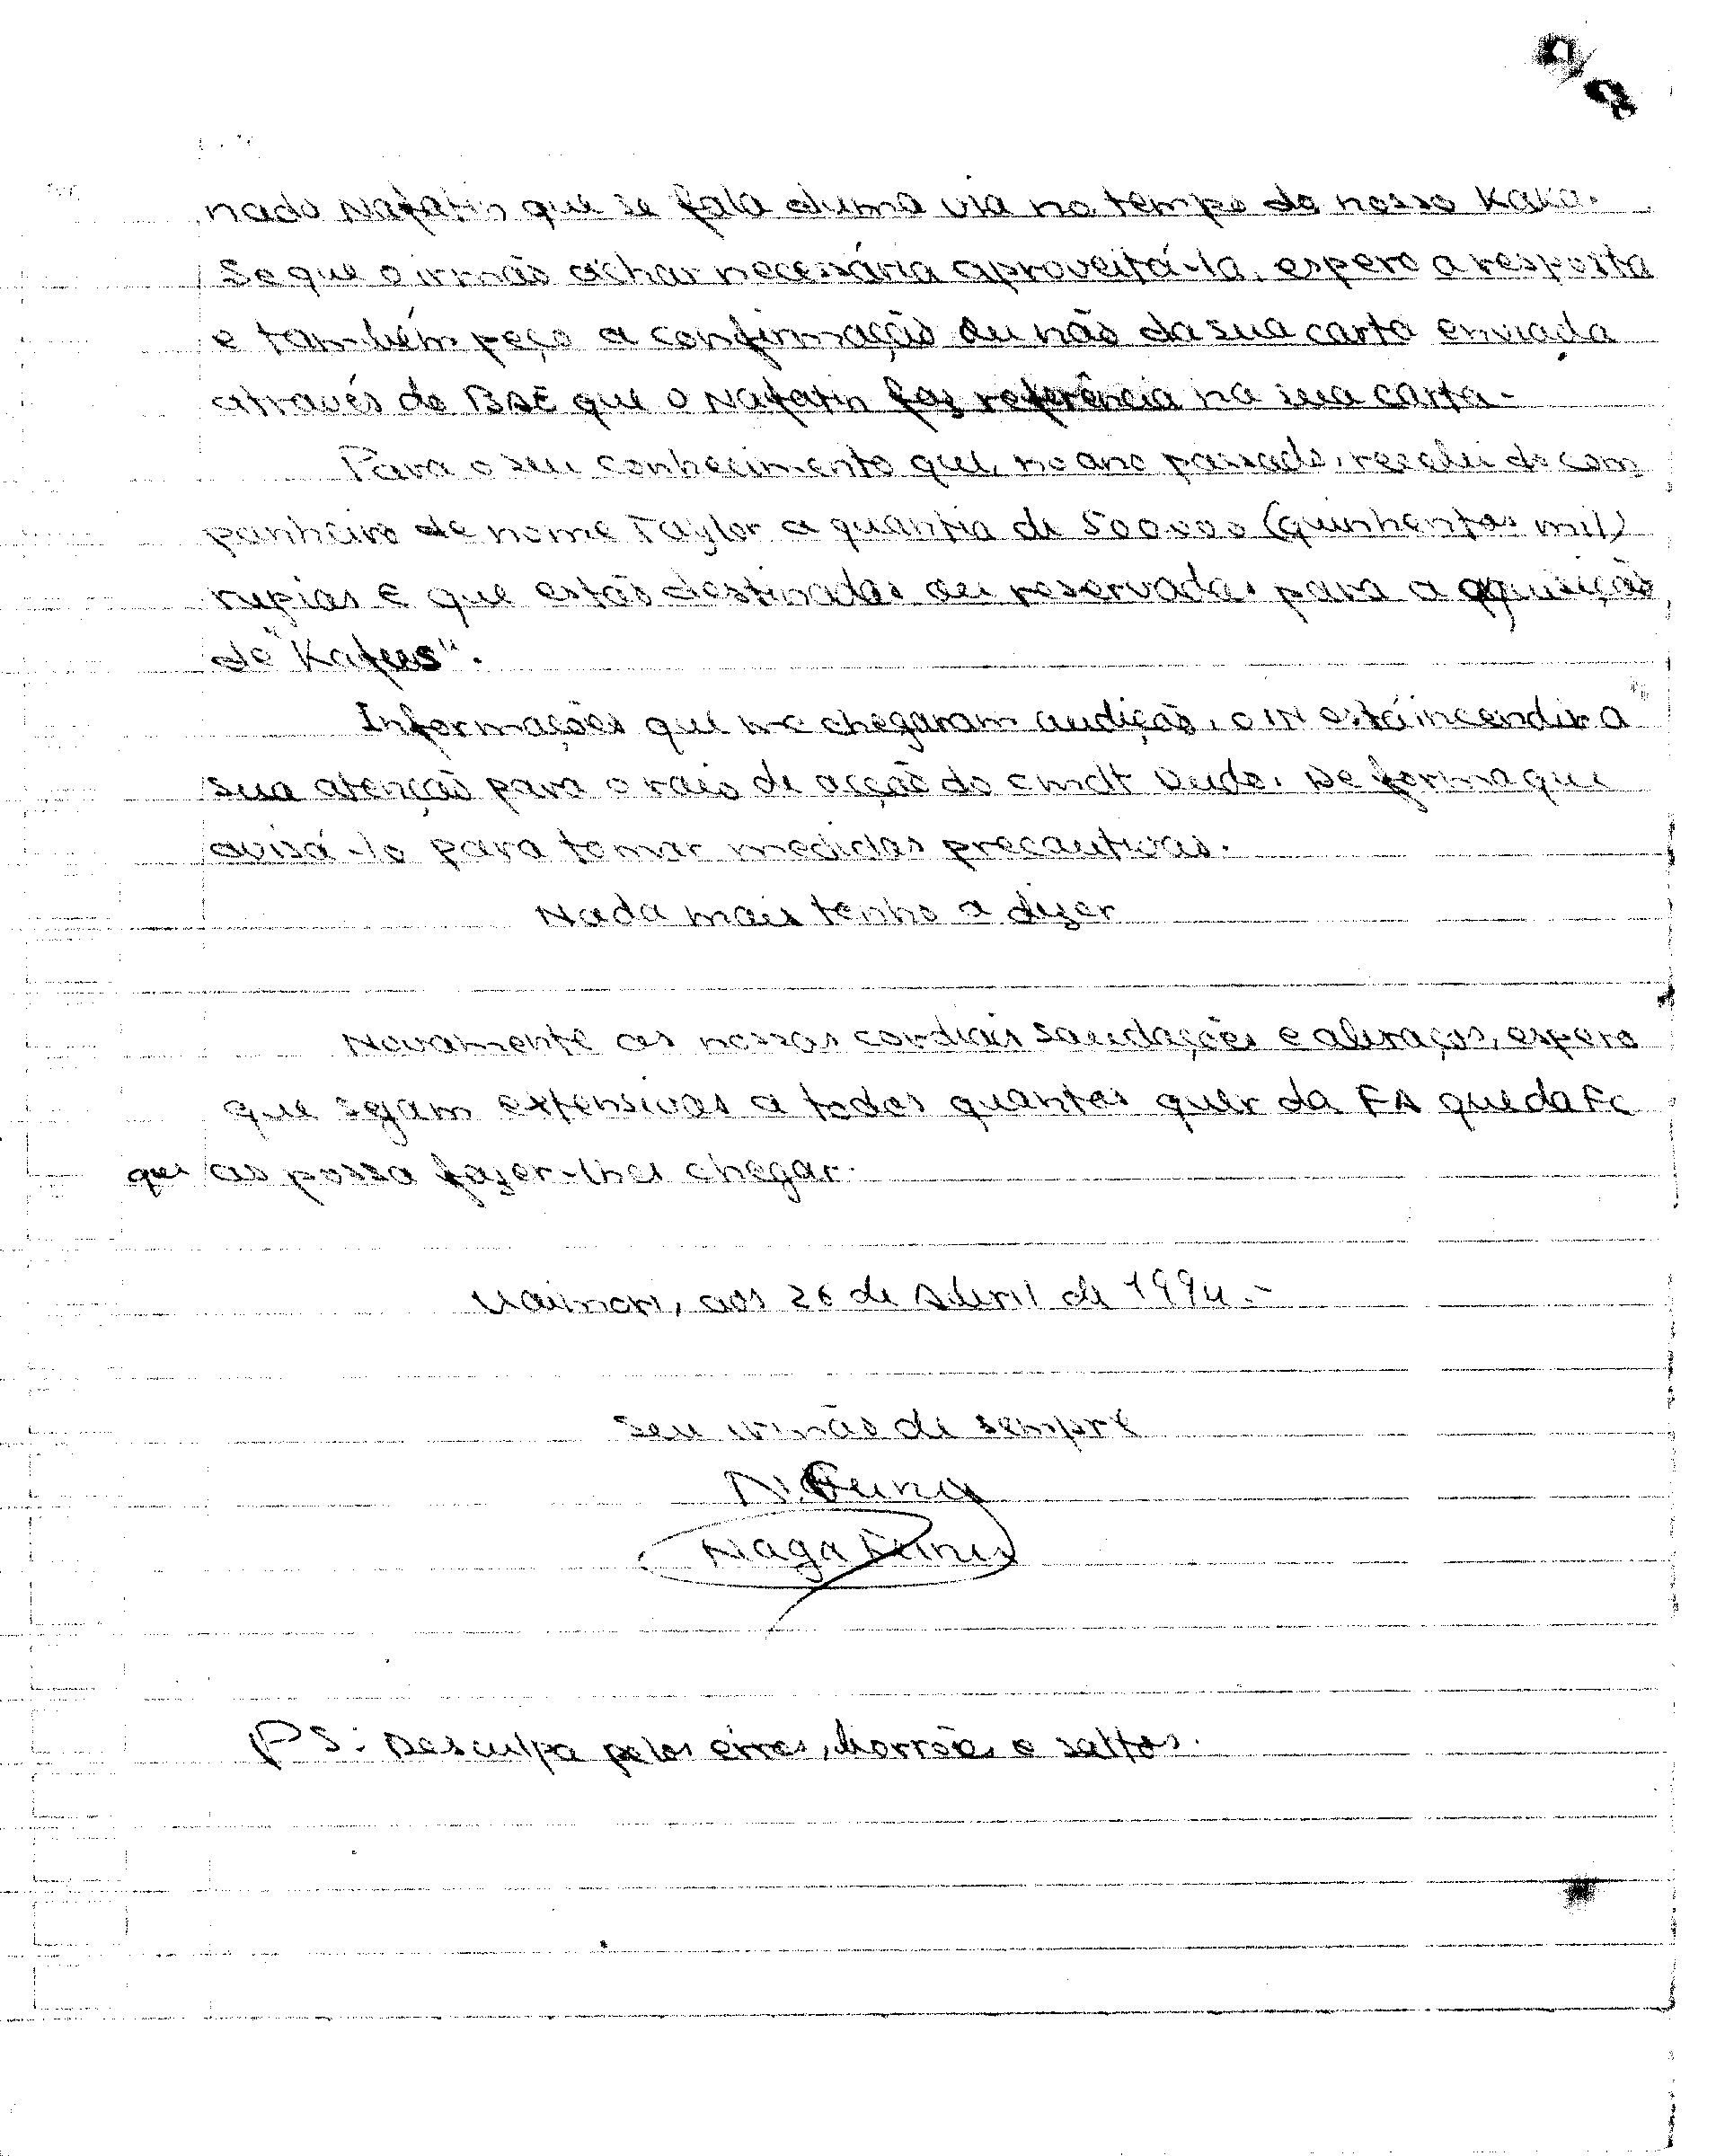 nado Nafatin que se fala duma via no tempo do nosso Kaka.
Se que o irmão achar necessária aproveitá-la, espero a resposta
e também peço a confirmação ou não da sua carta enviada
através do BAE que o Nafatin faz referência na sua carta.-
Para o seu conhecimento que, no ano passado, recebi do com
panheiro de nome Taylor a quantia de 500.000 (quinhentas mil)
rupias e que estão destinadas ou reservadas para a aquisição
de "Kafuus".
Informações que me chegaram audição, o IN está incendir a
sua atenção para o raio de acção do cmdt Dudo. De forma que
avisá-lo para tomar medidas precautivas.
Nada mais tenho a dizer
Novamente as nossas cordiais saudações e abraços, espero
que sejam extensivas a todos quantos quer da FA que da FC
que as possa fazer-lhes chegar.
aos 26 de Abril de 1994.-
Seu irmão de sempre
PS: Desculpa pelos erros, borrões e saltos.